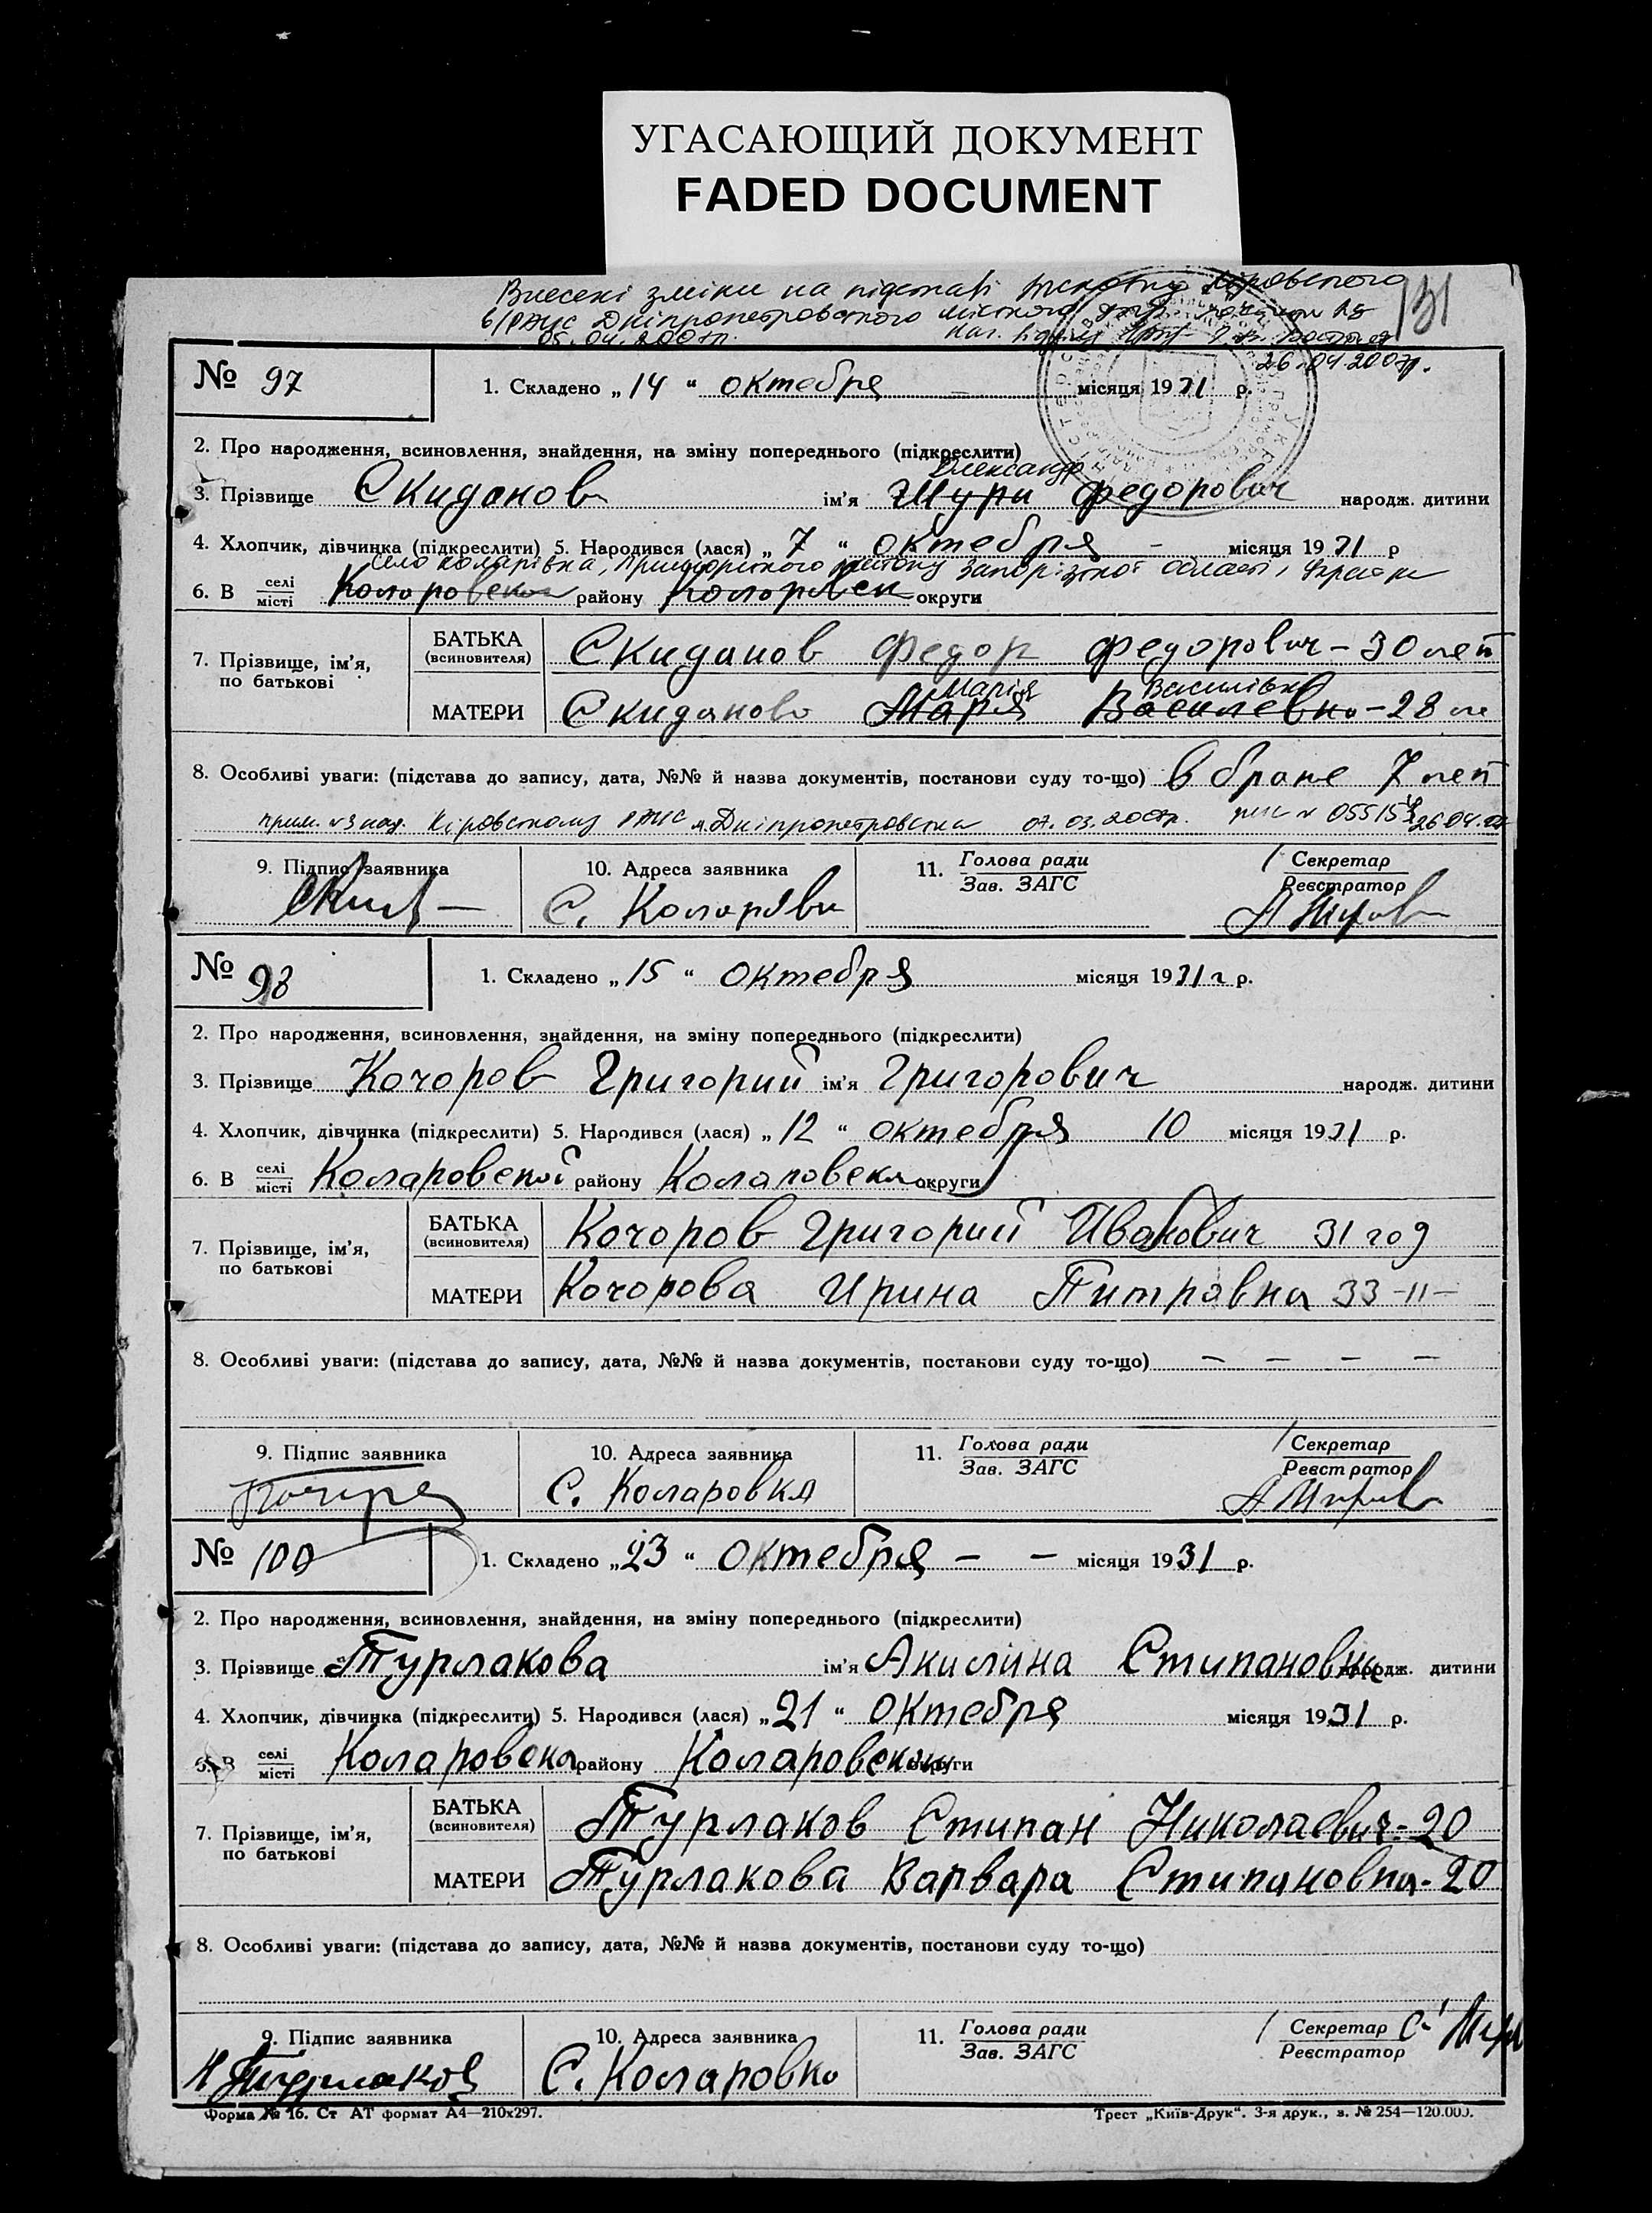 УГАСАЮЩИЙ ДОКУМЕНТ
FADED DOCUMENT
Внесені зміни на підставі Кіровського
в/РАЦС Дніпропетровського міського
05.04.2007р.
131
26.04.2007р.
№ 97
1. Складено „14“ октября — місяця 1931 р.
2. Про народження, всиновлення, знайдення, на зміну попереднього (підкреслити)
Олександр
3. Прізвище Скиданов ім'я Шури Федорович народж. дитини
4. Хлопчик, дівчинка (підкреслити) 5. Народився (лася) „7“ октября - місяця 1931 р
Село Коларівка, Приморського району Запорізької області, Україна
6. В селі/місті Коларовской району Коларовск округи
7. Прізвище, ім'я, по батькові
БАТЬКА (всиновителя) Скиданов Федор Федорович - 30 лет
Марія Василівна
МАТЕРИ Скиданова Мария Василевна - 28 ле
8. Особливі уваги: (підстава до запису, дата, №№ й назва документів, постанови суду то-що) в браке 7 лет
Кіровському РАЦС м.Дніпропетровська 07.03.2007р.
9. Підпис заявника 10. Адреса заявника 11. Голова ради / Зав. ЗАГС Секретар / Реєстратор
С. Коларівка
№ 98
1. Складено „15“ октября місяця 1931 г р.
2. Про народження, всиновлення, знайдення, на зміну попереднього (підкреслити)
3. Прізвище Кочоров Григорий ім'я Григорович народж. дитини
4. Хлопчик, дівчинка (підкреслити) 5. Народився (лася) „12“ октября 10 місяця 1931 р.
6. В селі/місті Коларовской району Коларовска округи
7. Прізвище, ім'я, по батькові
БАТЬКА (всиновителя) Кочоров Григорий Иванович 31 год
МАТЕРИ Кочорова Ирина Питровна 33 -11-
8. Особливі уваги: (підстава до запису, дата, №№ й назва документів, постанови суду то-що) — — — —
9. Підпис заявника 10. Адреса заявника 11. Голова ради / Зав. ЗАГС Секретар / Реєстратор
С. Коларовка
№ 100
1. Складено „23“ октября — — місяця 1931 р.
2. Про народження, всиновлення, знайдення, на зміну попереднього (підкреслити)
3. Прізвище Турлакова ім'я Акилина Стипановна народж. дитини
4. Хлопчик, дівчинка (підкреслити) 5. Народився (лася) „21“ октября місяця 1931 р.
6. В селі/місті Коларовска району Коларовский округи
7. Прізвище, ім'я, по батькові
БАТЬКА (всиновителя) Турлаков Стипан Николаевич - 20
МАТЕРИ Турлакова Варвара Стипановна - 20
8. Особливі уваги: (підстава до запису, дата, №№ й назва документів, постанови суду то-що)
9. Підпис заявника 10. Адреса заявника 11. Голова ради / Зав. ЗАГС Секретар / Реєстратор
Турлаков С. Коларовка
Форма № 16. Ст АТ формат А4—210х297. Трест „Київ-Друк“. 3-я друк., з. № 254—120.000.